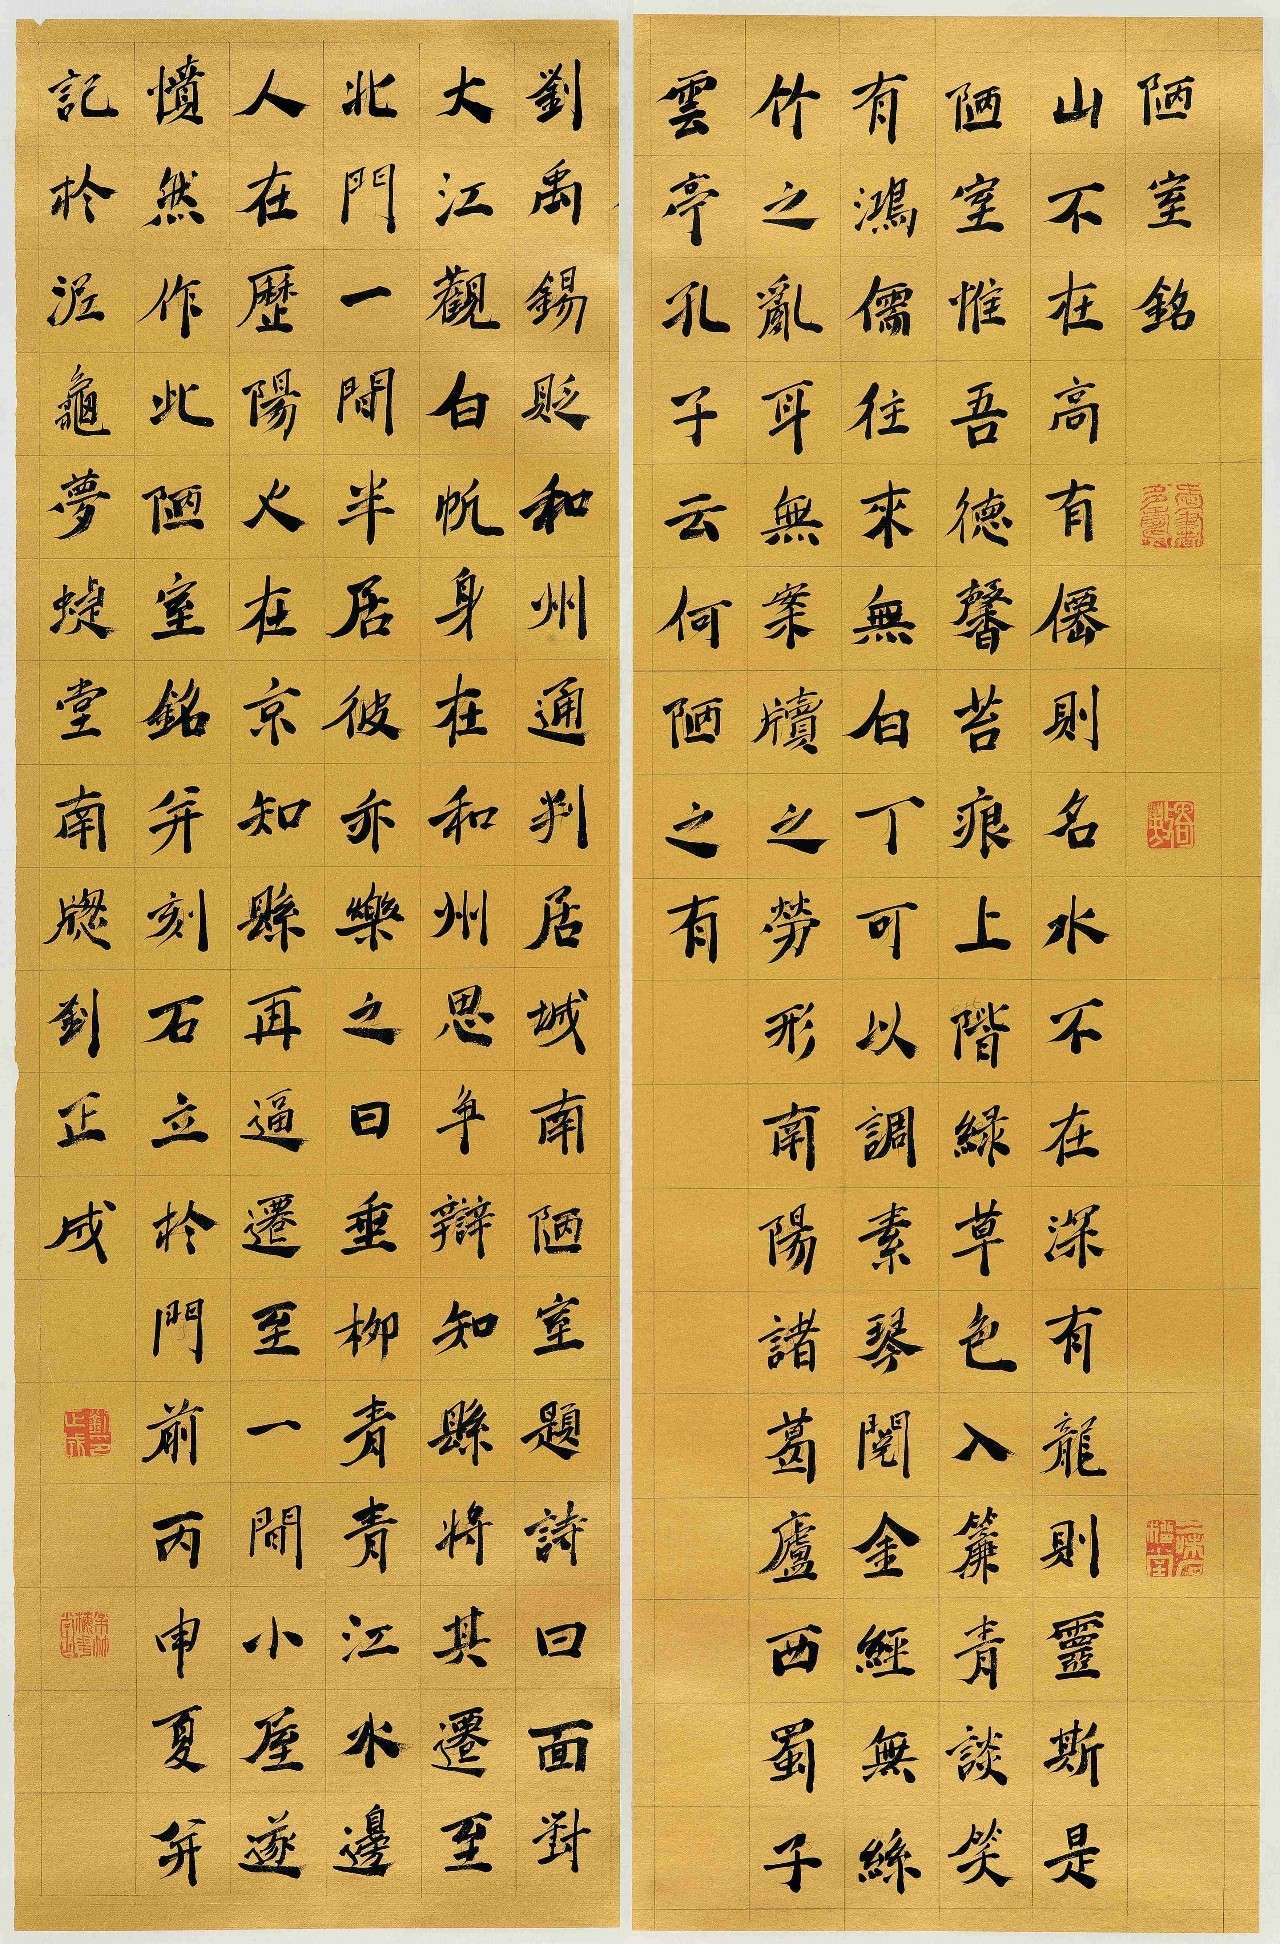 陋室銘
山不在高有僊則名水不在深有龍則靈斯是
陋室惟吾德馨苔痕上階緑草色入簾青談笑
有鴻儒往來無白丁可以調素琴閱金經無絲
竹之亂耳無案牘之勞形南陽諸葛廬西蜀子
雲亭孔子云何陋之有
劉禹錫貶和州通判居城南陋室題詩曰面對
大江觀白帆身在和州思争辯知縣將其遷至
北門一間半居彼亦樂之曰垂柳青青江水邊
人在歷陽火在京知縣再逼遷至一間小屋遂
憤然作此陋室銘并刻石立於門前丙申夏并
記於涇龜夢蜨堂南牕劉正成